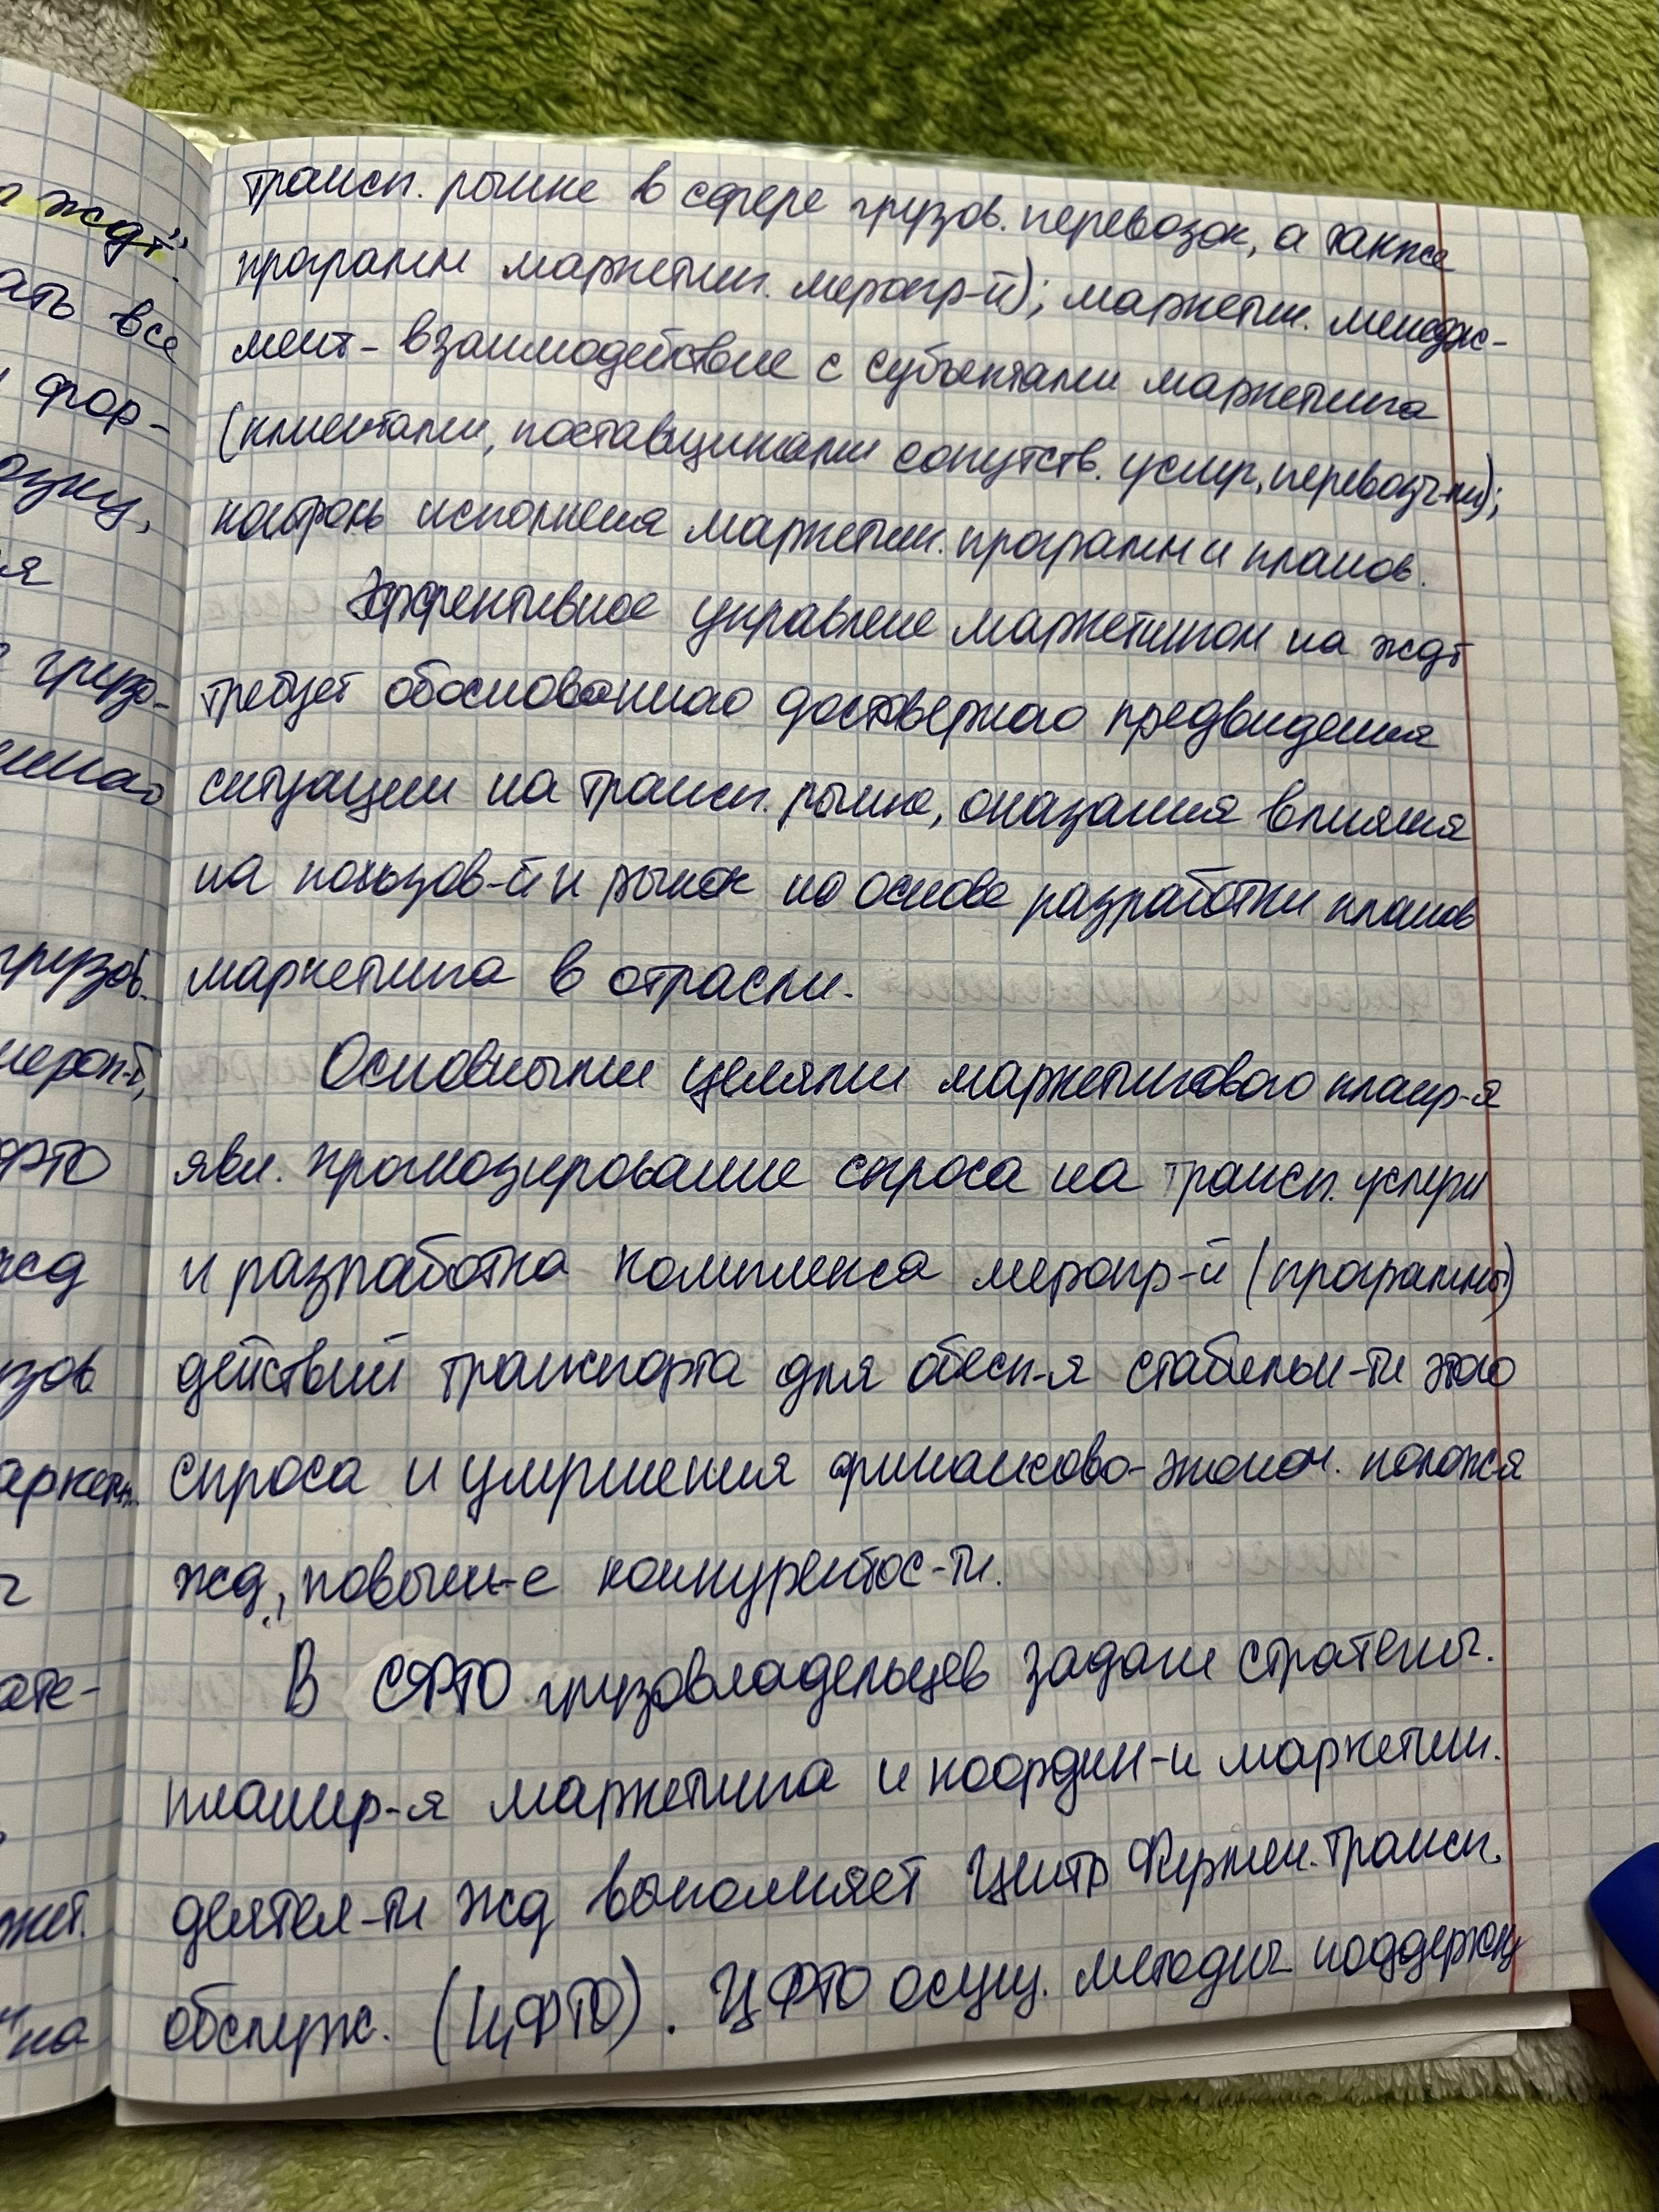 трансп. рынке в сфере грузов. перевозок, а также
программ маркетин. меропр-й); маркетин. менедж-
мент - взаимодействие с субъектами маркетинга
(клиентами, поставщиками сопутств. услуг, перевозч-ми);
контроль исполнения маркетин. программ и планов.
Эффективное управление маркетингом на ждт
требует обоснованного достоверного предвидения
ситуации на трансп. рынке, оказания влияния
на пользов-й и рынок на основе разработки планов
маркетинга в отрасли.
Основными целями маркетингового планир-я
явл. прогнозирование спроса на трансп. услуги
и разработка комплекса меропр-й (программы)
действий транспорта для обесп-я стабильн-ти этого
спроса и улучшения финансово-эконом. полож-я
жд, повыш-е конкурентос-ти.
В СФТО грузовладельцев задачи стратегич.
планир-я маркетинга и координ-и маркетин.
деятел-ти жд выполняет Центр Фирмен. трансп.
обслуж. (ЦФТО). ЦФТО осущ. методич поддержку
ждт".
ать все
фор-
я
грузо-
грузов.
ФТО
жд
зов
аркетин.
ате-
жет.
на